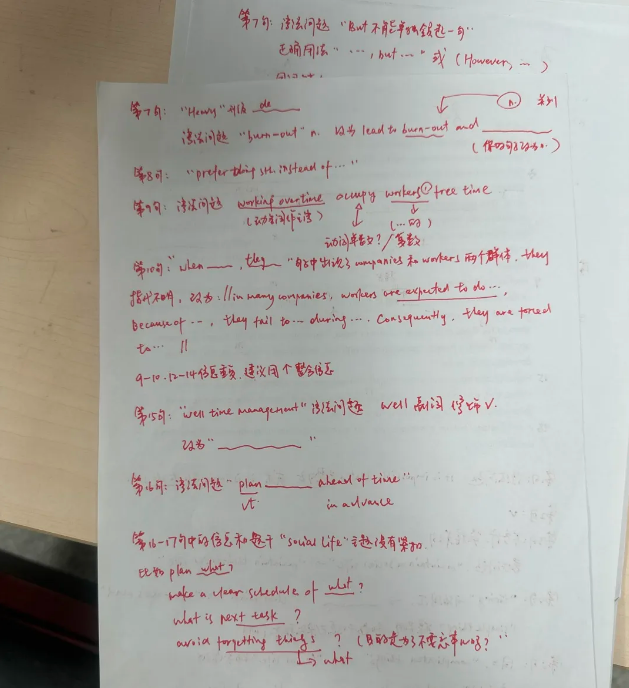 第7句：语法问题 "But 不能单独领起一句"
正确用法 "…, but …" 或 (However, …)
第7句： "Heavy" 升级 de____
n.
语法问题 "burn-out" n. 改为 lead to burn-out and ________
第8句： "prefer doing sth. instead of …"
第9句：语法问题 working overtime occupy workers free time
(动名词作主语) (…的)
动词单数？/复数
第10句： "when ____, they ____ " 句中出现了 companies 和 workers 两个群体. they
指代不明，改为：// in many companies, workers are expected to do …,
Because of …, they fail to … during …. Consequently, they are forced
to … //
9-10. 12-14 信息重复，建议同个整合信息
第15句： "well time management" 语法问题 well 副词 修饰 v.
改为 "________"
第16句：语法问题 "plan ____ ahead of time"
vt. in advance
第16-17句中的信息和题干 "social life" 主题没有紧扣
比如 plan what?
make a clear schedule of what?
what is next task ?
avoid forgetting things ? (目的是为了不要忘事儿吗？
what